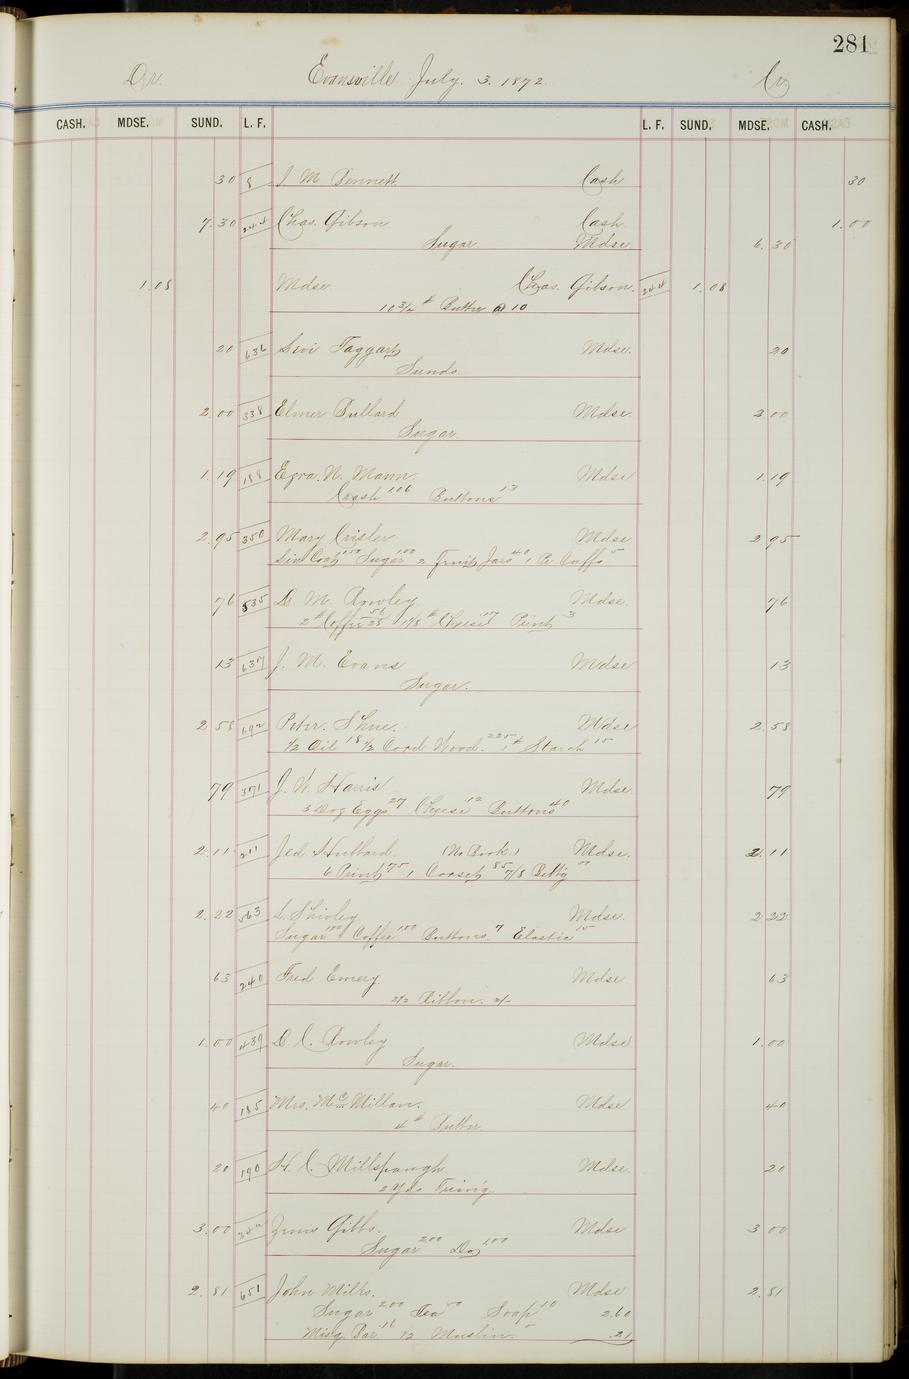 281
Dr. Evansville July. 3. 1872. Cr
CASH. MDSE. SUND. L. F. L. F. SUND. MDSE. CASH.
30 8 J M Bennett Cash 30
7.30 244 Chas. Gibson Cash 1.00
Sugar. Mdse. 6.30
1.08 Mdse. Chas. Gibson. 244 1.08
10 3/4 # Butter @ 10
20 636 Levi Taggart Mdse. 20
Sunds.
2.00 338 Elmer Bullard Mdse. 2.00
Sugar.
1.19 188 Ezra. N. Mann. Mdse 1.19
Crash 1.06 Buttons 13
2.95 350 Mary Crisler Mdse. 2.95
Lin Coat 1.50 Sugar 1.00 2 Fruit Jars 40 1 Pr Cuffs 5
76 535 D. M. Rowley Mdse. 76
2 # Coffee 28 56 1 1/8 # Cheese 17 Print 3
13 637 J. M. Evans Mdse 13
Sugar.
2.58 692 Peter. Shue. Mdse 2.58
1/2 Oil 18 1/2 Cord Wood. 2.25 1 # Starch 15
79 371 J. W. Harris Mdse. 79
3 Doz Eggs 27 Cheese 12 Buttons 40
2.11 211 Jed Hubbard. (No Book) Mdse. 2.11
6 Print 75 1 Corset 85 7/8
2.22 563 S. Shirley Mdse. 2.22
Sugar 1.00 Coffee 1.00 Buttons. 7 Elastic 15
63 240 Fred Emery. Mdse 63
2 1/2 Ribbon. 2/-
1.00 439 D. C. Rowley Mdse 1.00
Sugar.
40 185 Mrs. McMillan. Mdse 40
4 # Butter
20 190 H. C. Millspaugh Mdse. 20
2 Yds
3.00 Gibbs. Mdse 3.00
Sugar 2.00 Do 1.00
2.81 651 John Milks. Mdse 2.81
Sugar 2.00 Tea 50 Soap 10 2.60
Bar 16 1/2 Muslin. 5 .21